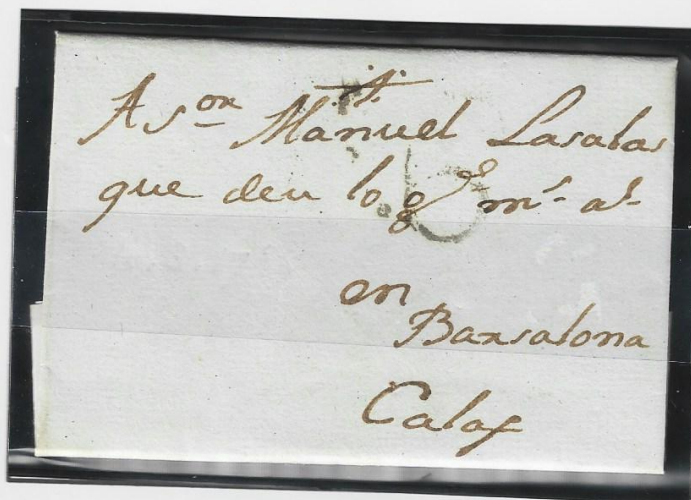 A Sor Manuel Lasalas
que deu lo gde ms as
en
Barsalona
Calaf